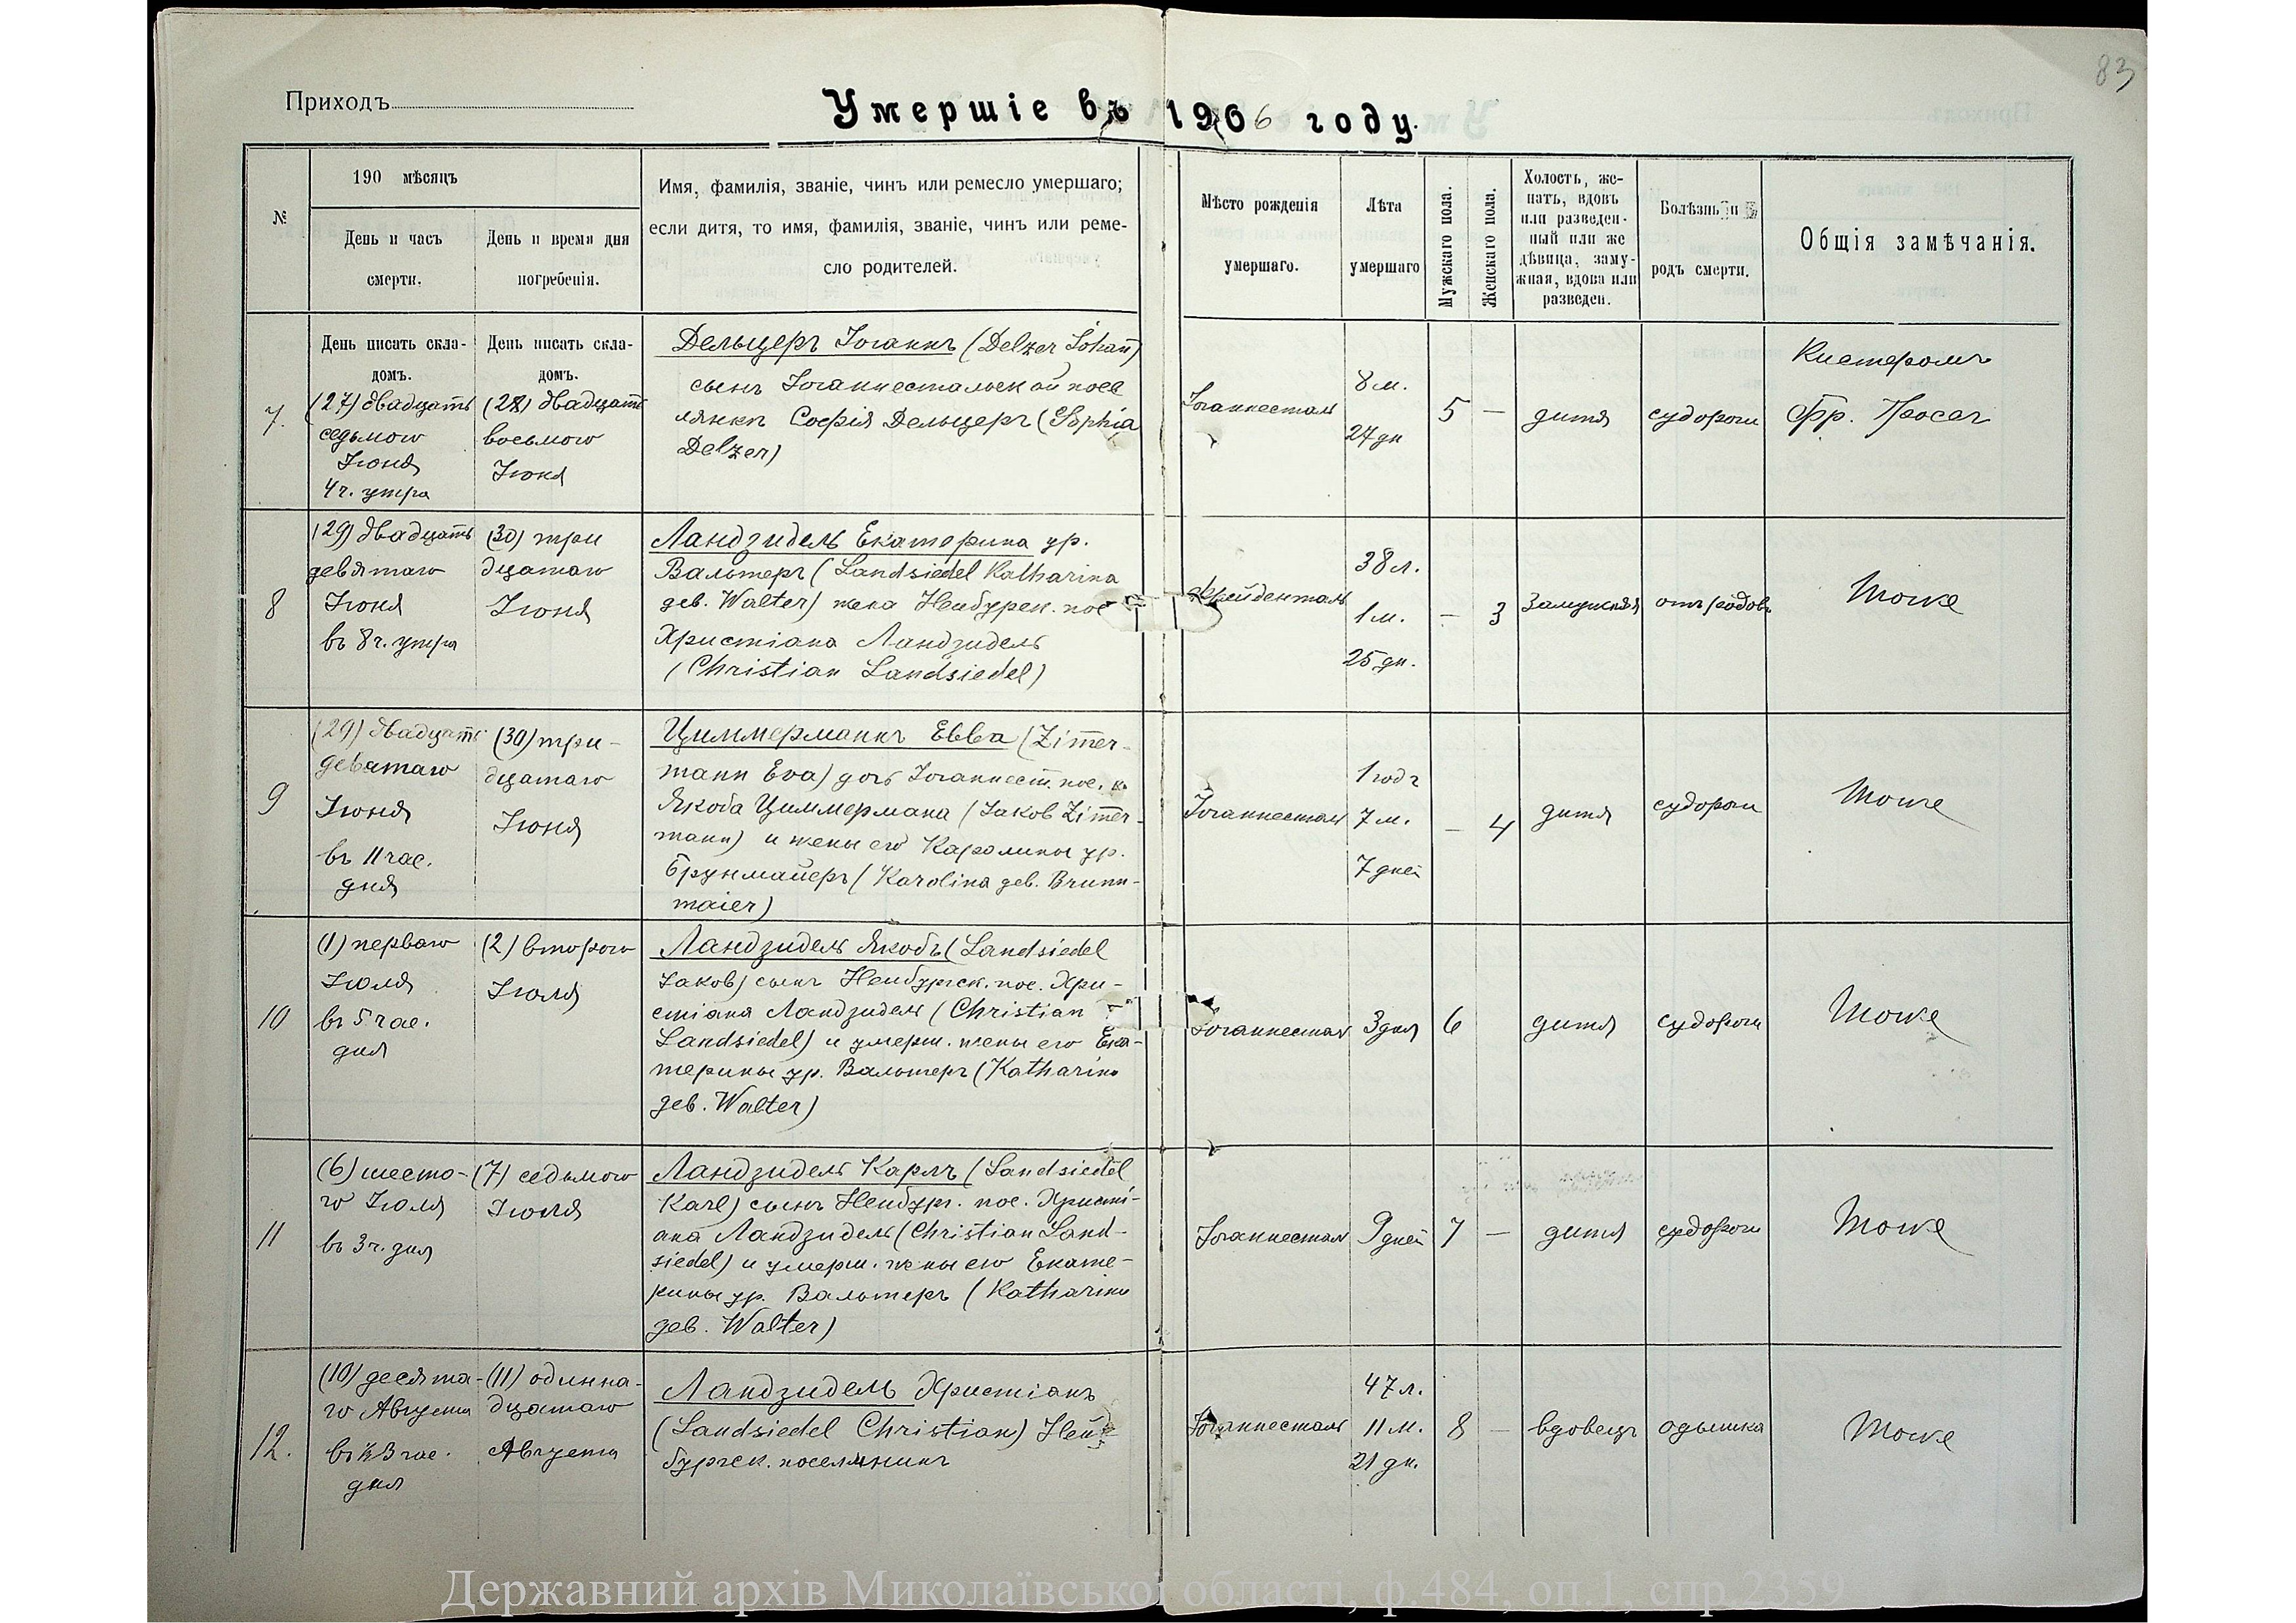 83
Приходъ
Умершіе въ 1906 году.
№
190 мѣсяцъ
День и часъ
смерти.
День и время дня
погребенія.
Имя, фамилія, званіе, чинъ или ремесло умершаго;
если дитя, то имя, фамилія, званіе, чинъ или реме-
сло родителей.
Мѣсто рожденія
умершаго.
Лѣта
умершаго
Мужскаго пола.
Женскаго пола.
Холостъ, же-
натъ, вдовъ
или разведен-
ный или же
дѣвица, заму-
жная, вдова или
разведен.
Болѣзнь и
родъ смерти.
Общія замѣчанія.
7.
День писать скла-
домъ.
(27) двадцать
седьмого
Іюня
4 ч. утра
День писать скла-
домъ.
(28) двадцать
восьмого
Іюня
Дельцеръ Іоганнъ (Delzer Johan̄)
сынъ Іоганнестальской посе
лянки Софія Дельцеръ (Sophia
Delzer)
Іоганнесталь
8 м.
27 дн
5
—
дитя
судороги
Кистеромъ
Фр.
8
(29) двадцать
девятаго
Іюня
въ 8 ч. утра
(30) три
дцатаго
Іюня
Ландзидель Екатерина ур.
Вальтеръ (Landsiedel Katharina
geb. Walter) жена Нейбургск. пос
Христіана Ландзидель
(Christian Landsiedel)
Фрейденталь
38 л.
1 м.
25 дн.
—
3
Замужняя
отъ родовъ
Тоже
9
(29) двадцать
девятаго
Іюня
въ 11 час.
дня
(30) три-
дцатаго
Іюня
Циммерманнъ Евва (Zim̄er-
mann Eva) дочь Іоганнест. пос.
Якоба Циммермана (Jakob Zim̄er-
mann) и жены его Каролины ур.
Брунмайеръ (Karolina geb. Brunn-
maier)
Іоганнесталь
1 годъ
7 м.
7 дней
—
4
дитя
судороги
Тоже
10
(1) перваго
Іюля
въ 5 час.
дня
(2) второго
Іюля
Ландзидель Якобъ (Landsiedel
Jakob) сынъ Нейбургск. пос. Хри-
стіана Ландзидель (Christian
Landsiedel) и умерш. жены его Ека-
терины ур. Вальтеръ (Katharina
geb. Walter)
Іоганнесталь
3 дня
6
дитя
судороги
Тоже
11
(6) шесто-
го Іюля
въ 3 ч. дня
(7) седьмого
Іюля
Ландзидель Карлъ (Landsiedel
Karl) сынъ Нейбург. пос. Христі-
ана Ландзидель (Christian Land-
siedel) и умерш. жены его Екате-
рины ур. Вальтеръ (Katharina
geb. Walter)
Іоганнесталь
9 дней
7
—
дитя
судороги
Тоже
12.
(10) десята-
го Августа
час.
дня
(11) одинна-
дцатаго
Августа
Ландзидель Христіанъ
(Landsiedel Christian) Ней
бургск. поселянинъ
Іоганнесталь
47 л.
11 м.
21 дн.
8
—
вдовецъ
одышка
Тоже
Державний архів Миколаївської області, ф.484, оп.1, спр.2359